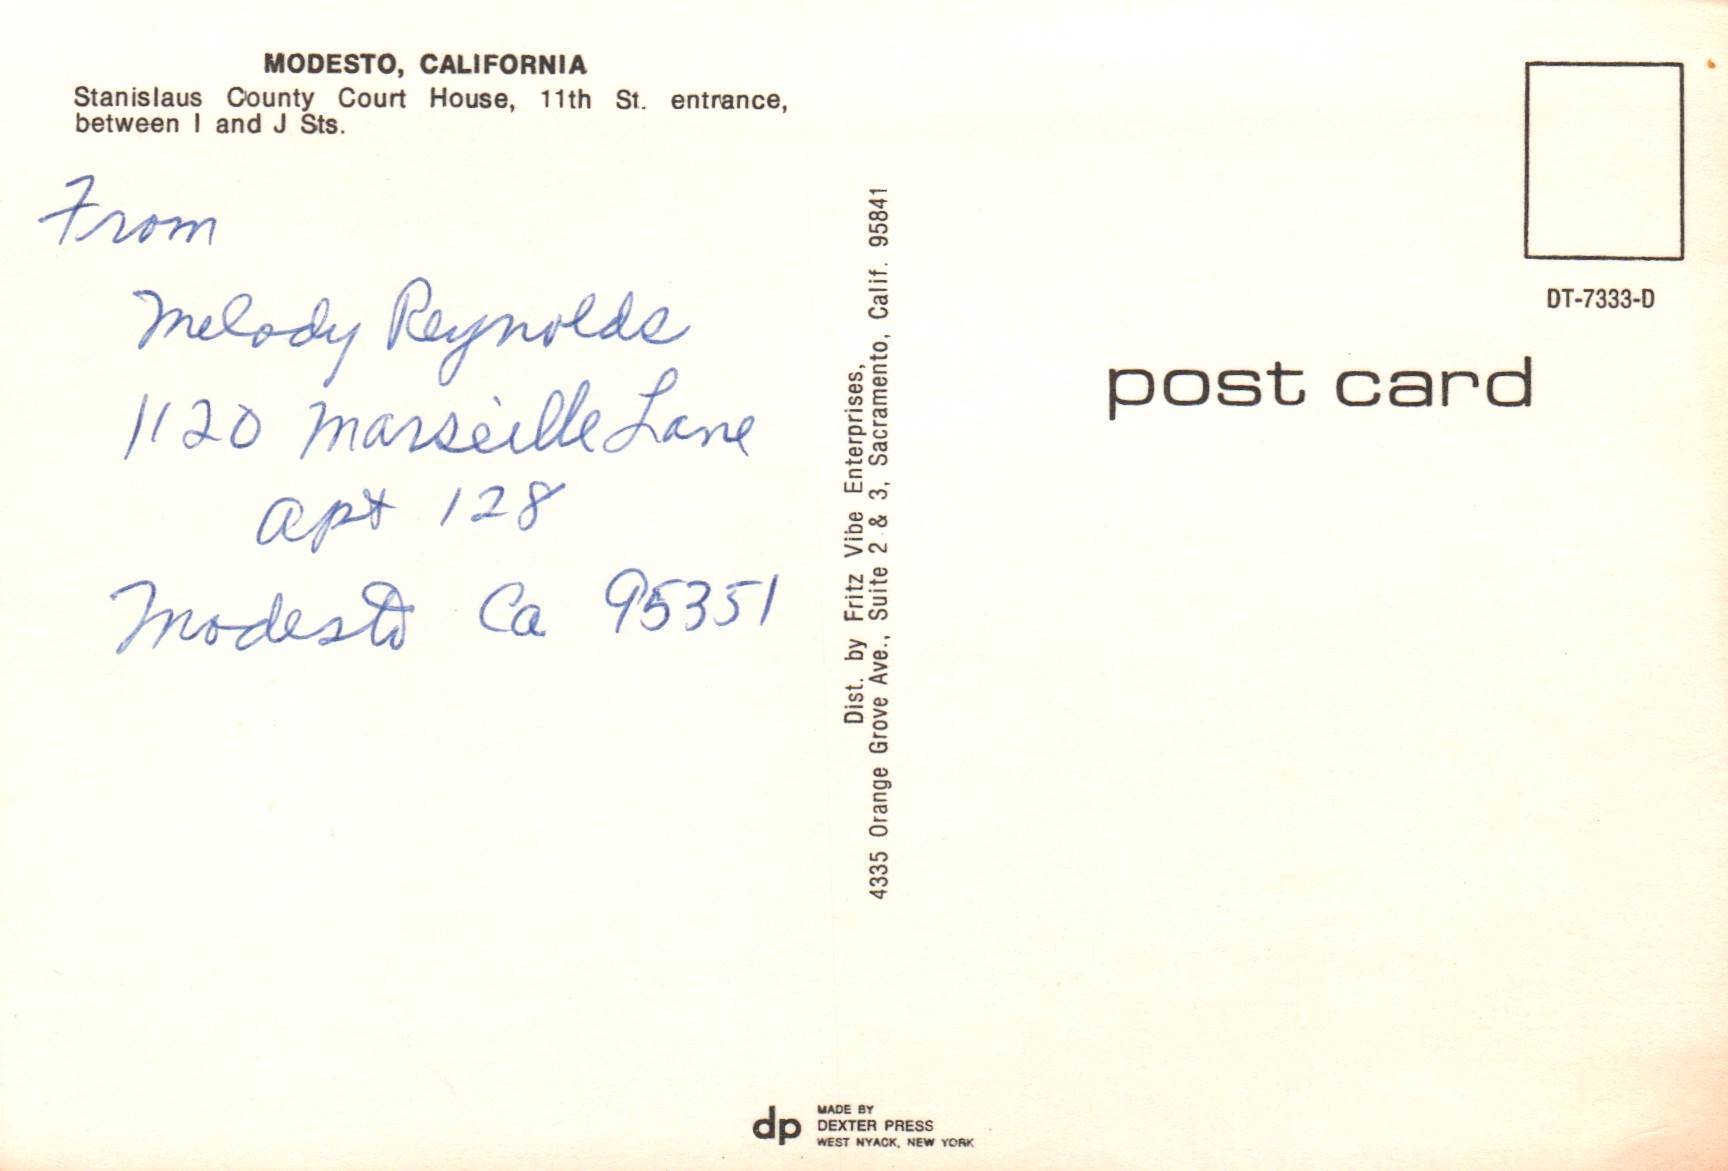 MODESTO, CALIFORNIA
Stanislaus County Court House, 11th St. entrance,
between I and J Sts.
From
Melody Reynolds
1120 Marseille Lane
apt 128
Modesto Ca 95351
Dist. by Fritz Vibe Enterprises,
4335 Orange Grove Ave., Suite 2 & 3, Sacramento, Calif. 95841
DT-7333-D
post card
dp
MADE BY
DEXTER PRESS
WEST NYACK, NEW YORK